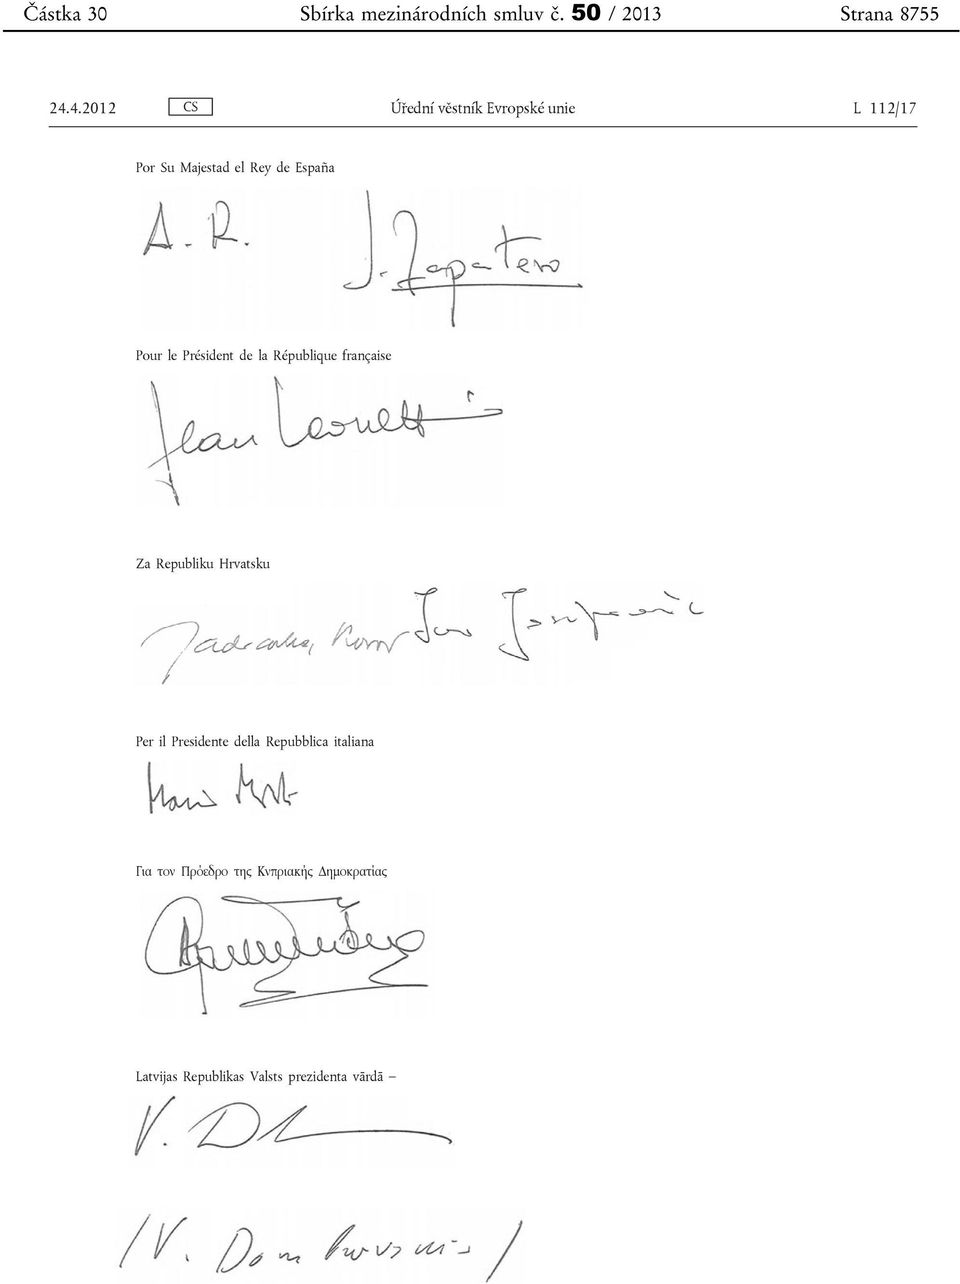 Částka 30 Sbírka mezinárodních smluv č. 50 / 2013 Strana 8755
24.4.2012 CS Úřední věstník Evropské unie L 112/17
Por Su Majestad el Rey de España
A. R. J. Zapatero
Pour le Président de la République française
Jean Leonetti
Za Republiku Hrvatsku
Jadranka Kosor Ivo Josipović
Per il Presidente della Repubblica italiana
Mario Monti
Για τον Πρόεδρο της Κυπριακής Δημοκρατίας
Latvijas Republikas Valsts prezidenta vārdā –
V. D
/V. Dombrovskis/